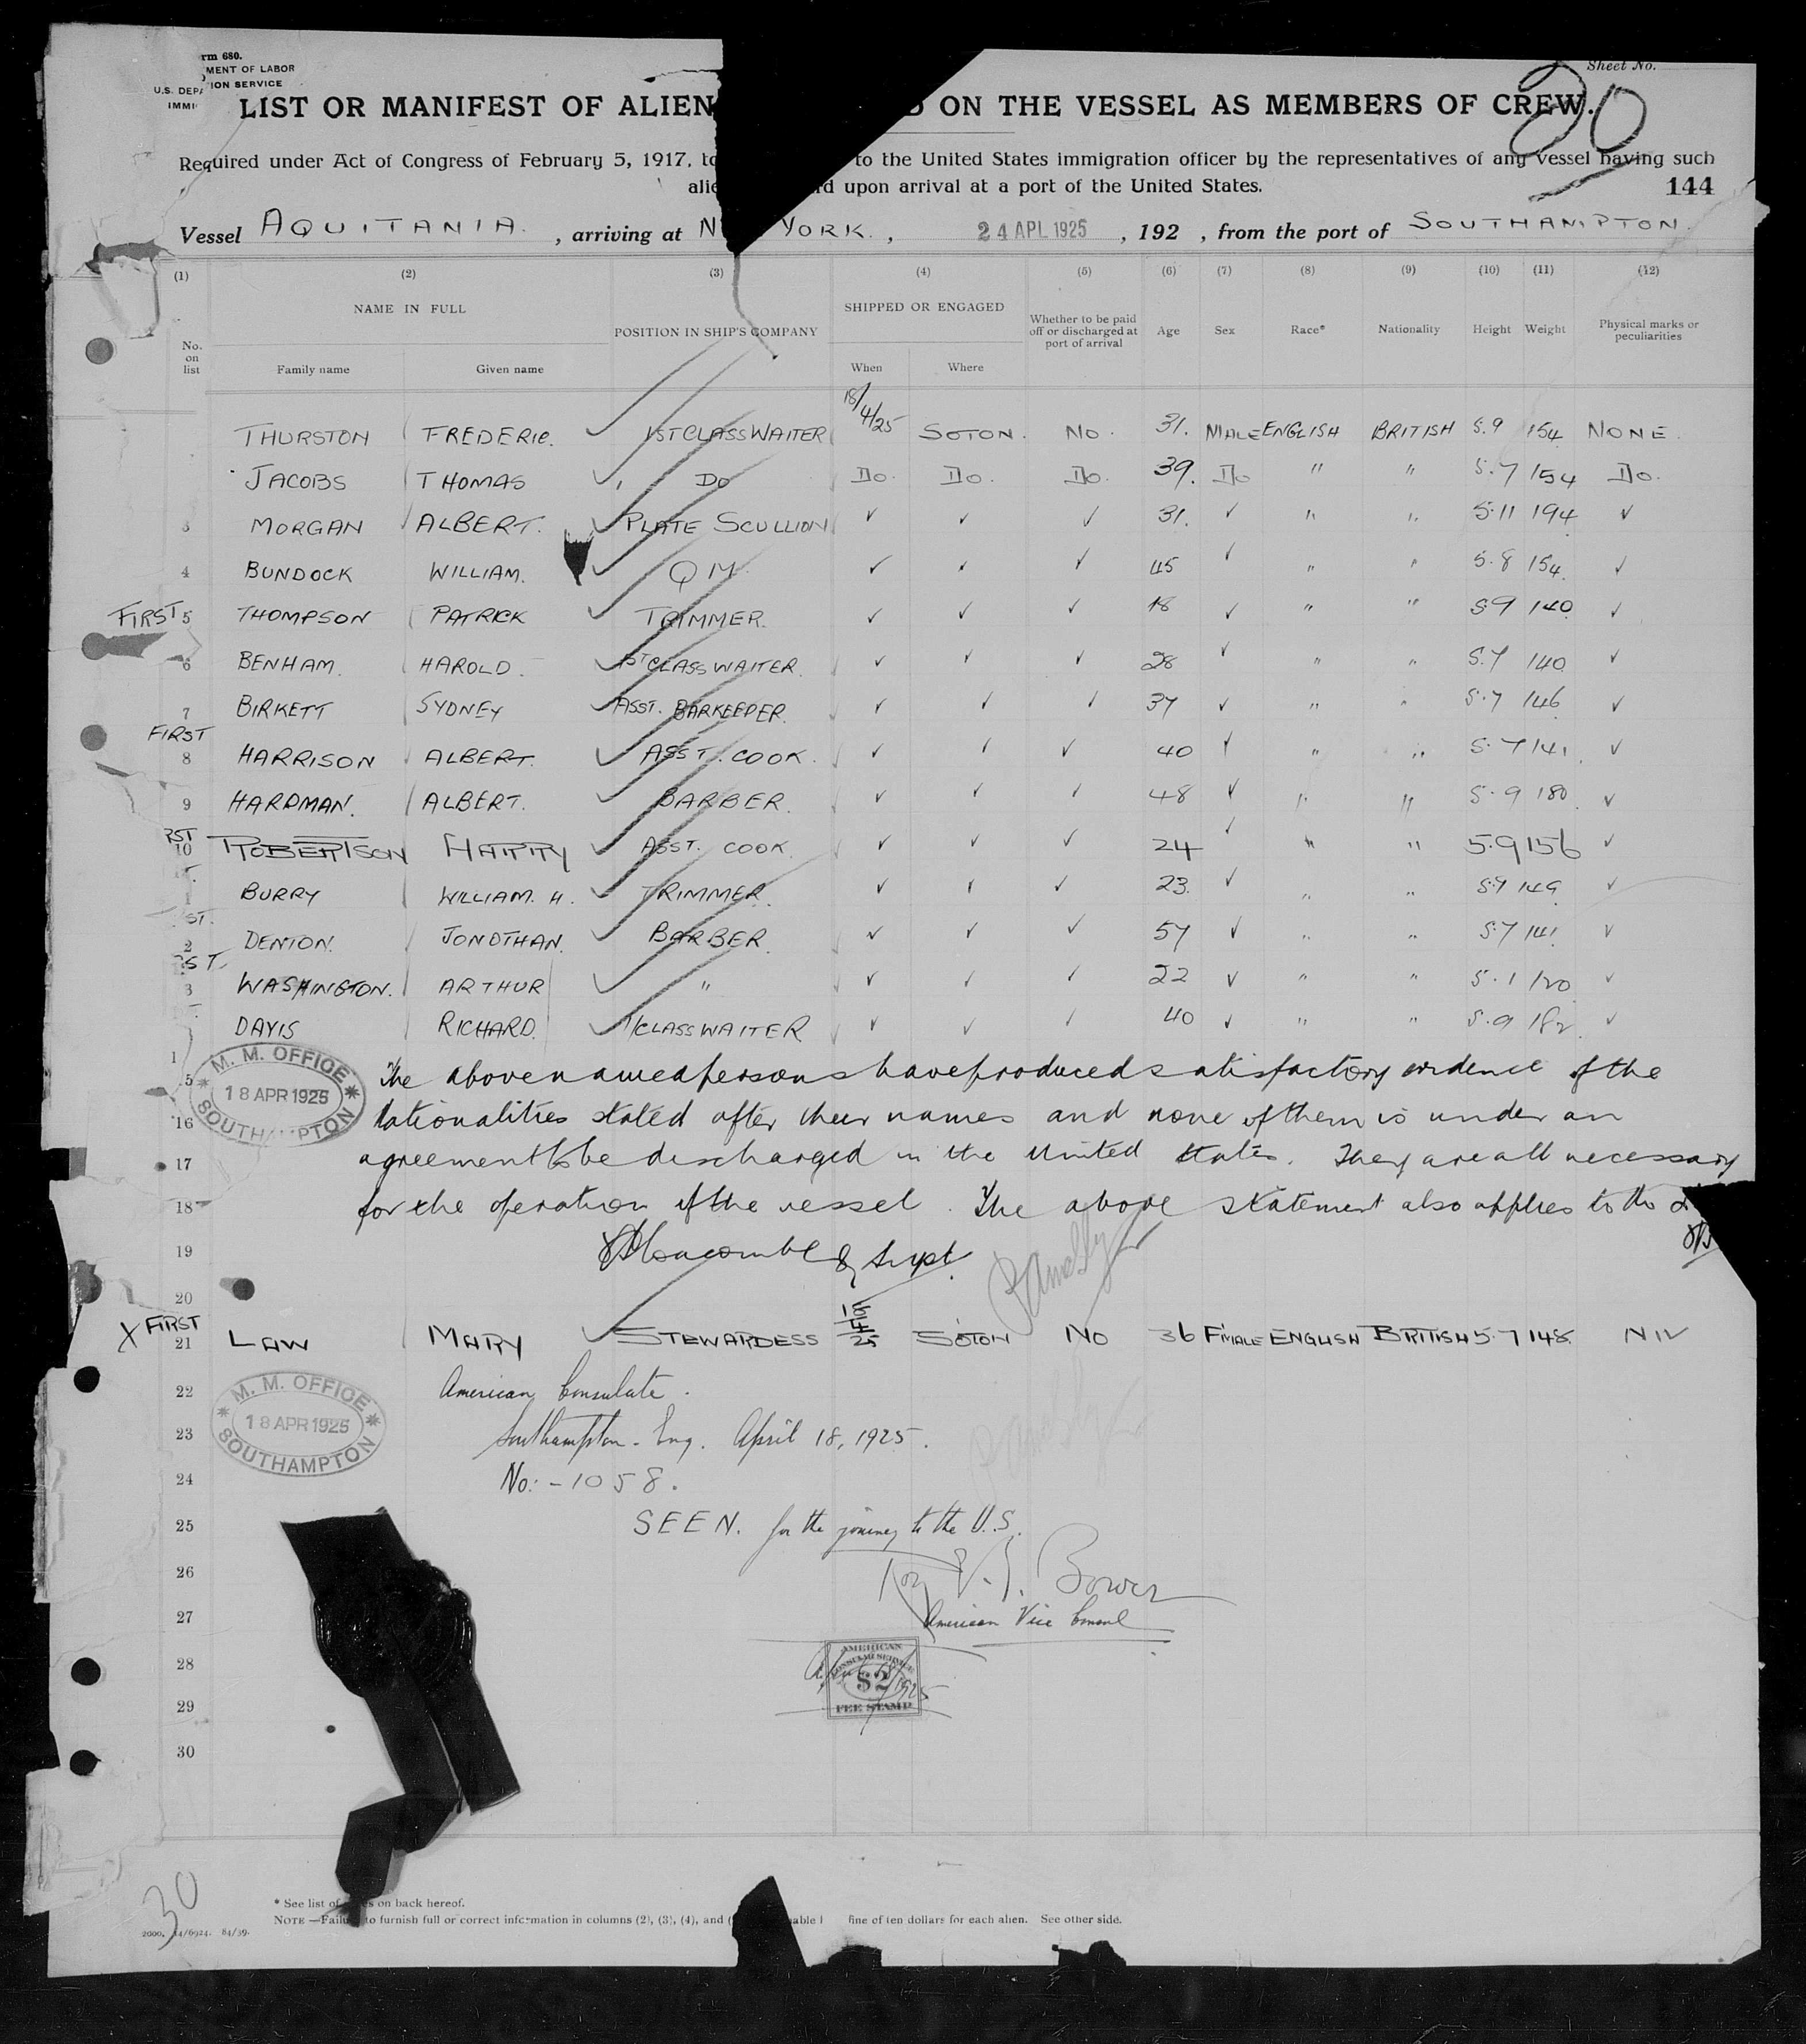 rm 680.
MENT OF LABOR
ION SERVICE
U.S. DEPA
IMMI
Sheet No.
20
LIST OR MANIFEST OF ALIEN D ON THE VESSEL AS MEMBERS OF CREW.
Required under Act of Congress of February 5, 1917, to to the United States immigration officer by the representatives of any vessel having such
alie rd upon arrival at a port of the United States.
144
Vessel AQUITANIA. , arriving at N YORK. , 24 APL 1925 , 192 , from the port of SOUTHAMPTON.
(1) (2) (3) (4) (5) (6) (7) (8) (9) (10) (11) (12)
No. on list NAME IN FULL POSITION IN SHIP'S COMPANY SHIPPED OR ENGAGED Whether to be paid off or discharged at port of arrival Age Sex Race* Nationality Height Weight Physical marks or peculiarities
Family name Given name When Where
THURSTON FREDERIC. ✓ 1ST CLASS WAITER 18/4/25 SOTON. NO. 31. MALE ENGLISH BRITISH 5.9 154 NONE.
JACOBS THOMAS ✓ DO DO. DO. DO. 39. DO " " 5.7 154 DO.
3 MORGAN ALBERT. ✓ PLATE SCULLION ✓ ✓ ✓ 31. ✓ " " 5.11 194 ✓
4 BUNDOCK WILLIAM. ✓ QM ✓ ✓ ✓ 45 ✓ " " 5.8 154. ✓
FIRST 5 THOMPSON PATRICK ✓ TRIMMER. ✓ ✓ ✓ 18 ✓ " " 5.9 140 ✓
6 BENHAM. HAROLD. ✓ 1ST CLASS WAITER. ✓ ✓ ✓ 28 ✓ " " 5.7 140 ✓
7 BIRKETT SYDNEY ✓ ASST. BARKEEPER. ✓ ✓ ✓ 37 ✓ " " 5.7 146 ✓
FIRST
8 HARRISON ALBERT. ✓ ASST. COOK. ✓ ✓ ✓ 40 ✓ " " 5.7 141 ✓
9 HARDMAN. ALBERT. ✓ BARBER. ✓ ✓ ✓ 48 ✓ " " 5.9 180 ✓
RST
10 ROBERTSON HARRY ✓ ASST. COOK ✓ ✓ ✓ 24 ✓ " " 5.9 156 ✓
1 BURRY WILLIAM. H. ✓ TRIMMER. ✓ ✓ ✓ 23. ✓ " " 5.9 149 ✓
ST.
2 DENTON. JONOTHAN. ✓ BARBER ✓ ✓ ✓ 57 ✓ " " 5.7 141 ✓
RST
3 WASHINGTON. ARTHUR ✓ " ✓ ✓ ✓ 22 ✓ " " 5.1 120 ✓
DAVIS RICHARD. ✓ 1 CLASS WAITER ✓ ✓ ✓ 40 ✓ " " 5.9 182 ✓
1
5
M. M. OFFICE
18 APR 1925
SOUTHAMPTON
The above named persons have produced satisfactory evidence of the
16 Nationalities stated after their names and none of them is under an
17 agreement to be discharged in the United States. They are all necessary
18 for the operation of the vessel. The above statement also applies to the
19 Supt.
20
X FIRST
21 LAW MARY ✓ STEWARDESS SOTON NO 36 FMALE ENGLISH BRITISH 5.7 148. NIL
M. M. OFFICE
18 APR 1925
SOUTHAMPTON
22 American Consulate.
23 Southampton - Eng. April 18, 1925.
24 No: - 1058.
25 SEEN. for the journey to the U.S.
26 Bower
27 American Vice Consul
AMERICAN
CONSULAR SERVICE
$2
FEE STAMP
28
29
30
30
* See list of s on back hereof.
NOTE —Failu to furnish full or correct information in columns (2), (3), (4), and ( able fine of ten dollars for each alien. See other side.
2000. 14/6924. 84/39.